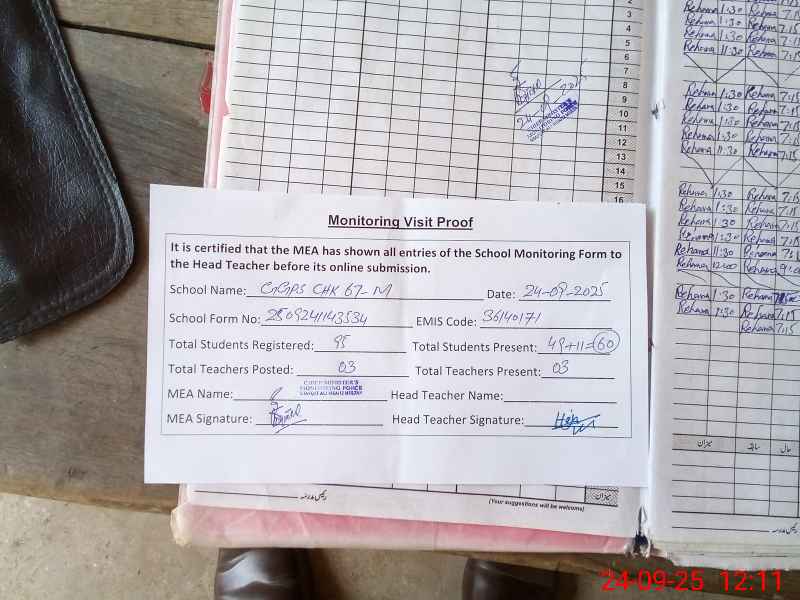 2
3
4
5
6
7
8
9
10
11
12
13
14
15
24-09-2025
Rehana 1:30 Rehana 7:15
Rehana 1:30 Rehana 7:15
Rehana 1:30 Rehana 7:15
Rehana 11:30 Rehana 7:15
Rehana 1:30 Rehana 7:15
Rehana 1:30 Rehana 7:15
Rehana 1:30 Rehana 7:15
Rehana 1:30 Rehana 7:15
Rehana 11:30 Rehana 7:15
Rehana 1:30 Rehana 7:15
Rehana 1:30 Rehana 7:15
Rehana 1:30 Rehana 7:15
Rehana 1:30 Rehana 7:15
Rehana 11:30 Rehana
Rehana 12:00 Rehana
Rehana 1:30 Rehana
Rehana 1:30 Rehana 7:15
Rehana 7:15
Monitoring Visit Proof
It is certified that the MEA has shown all entries of the School Monitoring Form to
the Head Teacher before its online submission.
School Name: GGPS CHK 67-M Date: 24-09-2025
School Form No: 2509241143534 EMIS Code: 36140171
Total Students Registered: 95 Total Students Present: 49+11=60
Total Teachers Posted: 03 Total Teachers Present: 03
CHIEF MINISTER'S
MONITORING FORCE
MEA Name: Head Teacher Name:
MEA Signature: Head Teacher Signature:
میزان سابقہ حال
میزان
رئیس مدرسہ
(Your suggestions will be welcome)
رئیس مدرسہ
24-09-25 12:11